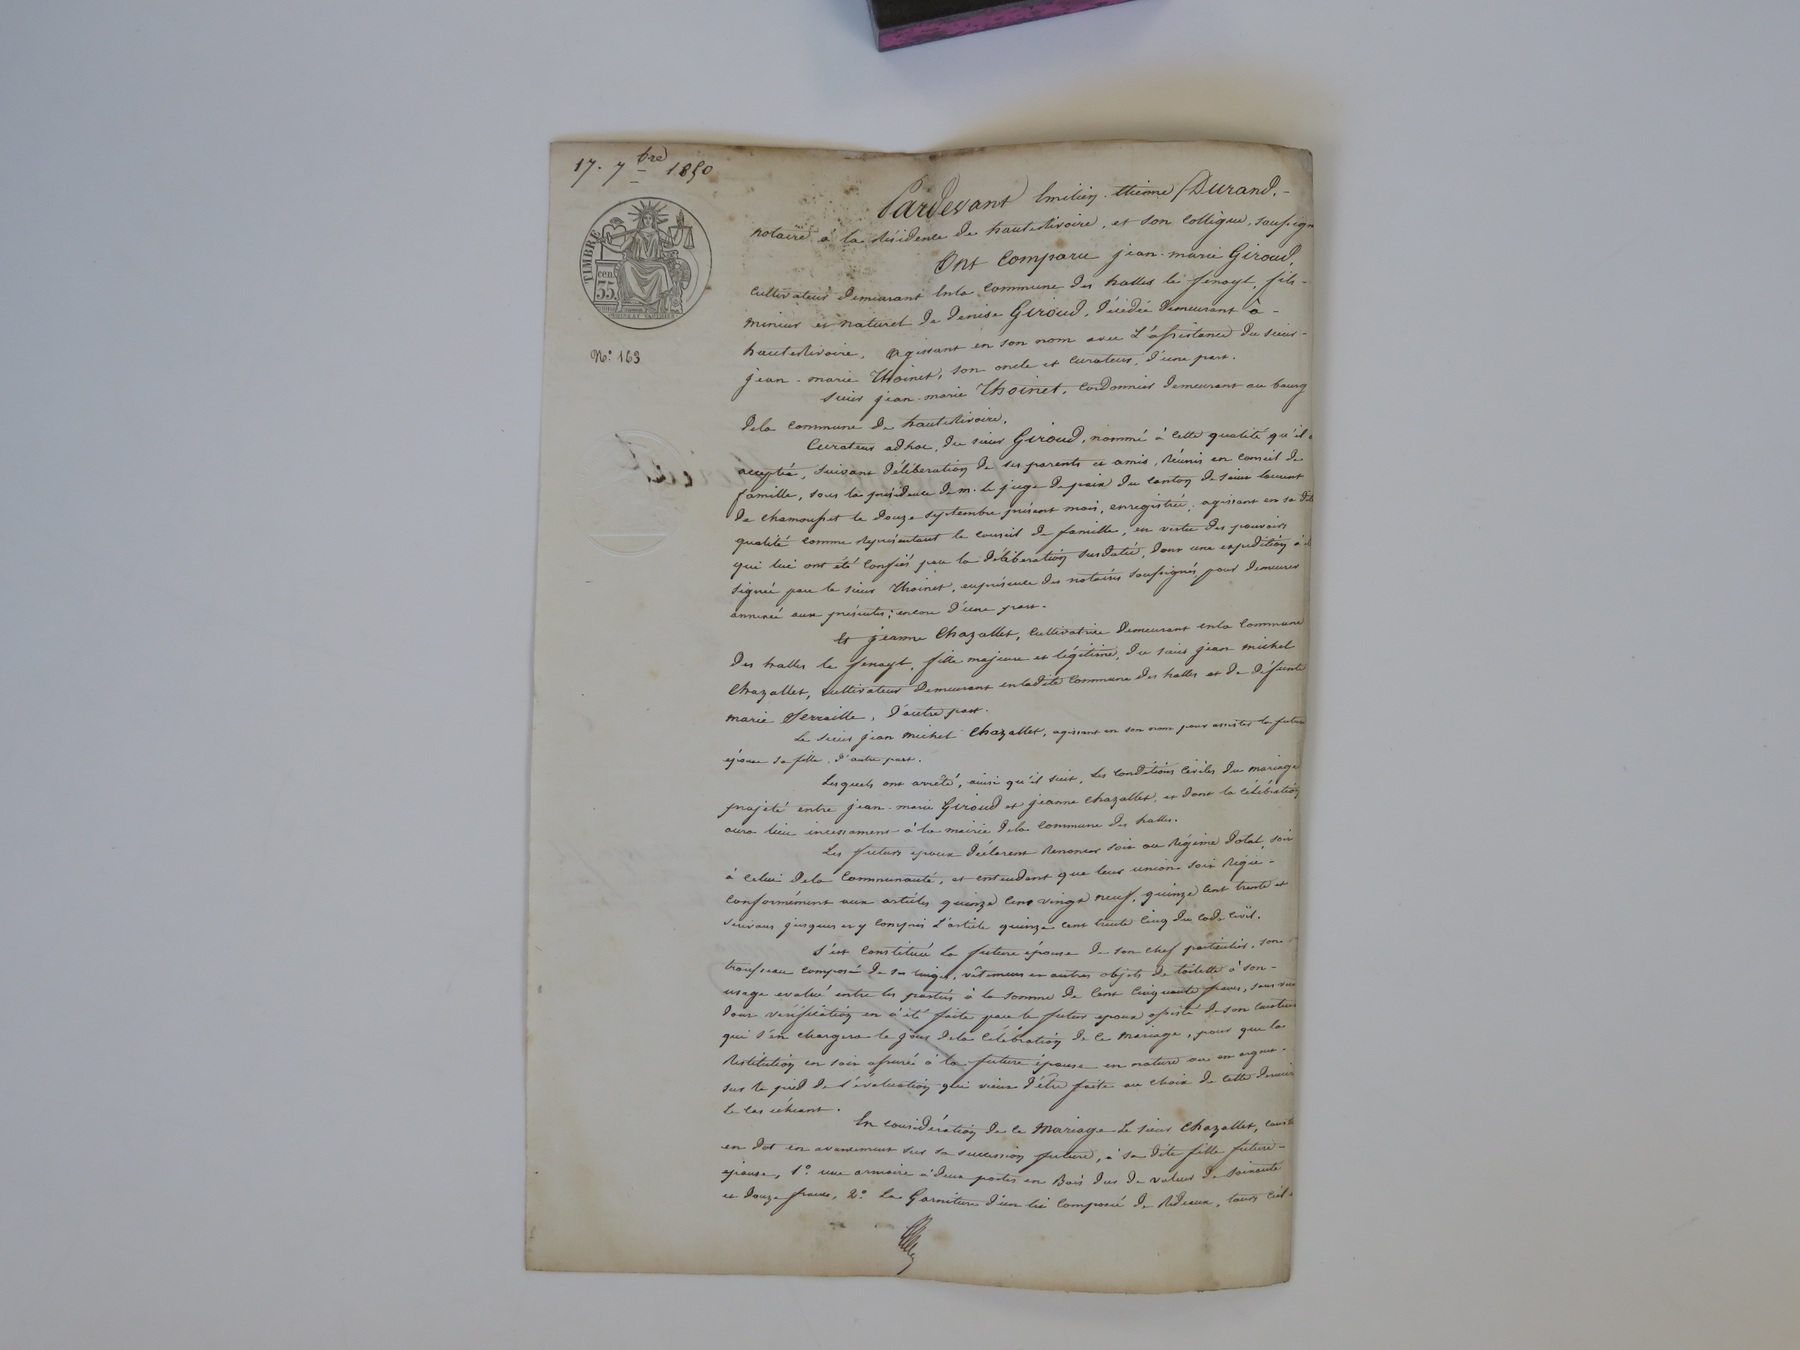 17. 7bre 1850
TIMBRE
cent
35
N° 163
Pardevant Emilien Etienne Durand,
notaire à la Résidence de hauterivoire, et son collègue, soussign
Ont comparu jean-marie Giroud,
cultivateur demeurant enla commune des halles le fenoyl, fils
mineur et naturel de denise Giroud, décédée demeurant à
hauterivoire, agissant en son nom avec L'assistance du sieur
jean-marie Thoinet, son oncle et curateur, d'une part.
sieur jean-marie Thoinet, cordonnier demeurant au bourg
dela commune de hauterivoire,
Curateur adhoc, du sieur Giroud, nommé à cette qualité qu'il a
acceptée, suivant délibération de ses parents et amis, Réunis en conseil de
famille, sous la présidence de m. le juge de paix du canton de saint laurent
de chamousset le douze septembre présent mois, enregistrée, agissant en sa dite
qualité comme représentant le conseil de famille, en vertu des pouvoirs
qui lui ont été confiés par la délibération susdatée, dont une expédition à été
signée par le sieur Thoinet, enprésence des notaires soussignés, pour demeurer
annexée aux présentes; encore d'une part.
Et jeanne Chazallet, cultivatrice demeurant enla commune
des halles le fenoyl, fille majeure et légitime, du sieur jean michel
Chazallet, cultivateur demeurant enladite commune des halles et de défunte
marie Serraille, d'autre part.
Le sieur jean michel Chazallet, agissant en son nom pour assister la future
épouse sa fille, d'autre part.
Lesquels ont arrêté, ainsi qu'il suit, Les conditions civiles du mariage
projeté entre jean-marie Giroud et jeanne Chazallet, et dont la célébration
aura lieu incessament à la mairie dela commune des halles.
Les futurs époux déclarent Renoncer soit au Régime dotal, soit
à celui dela Communauté, et entendent que leur union soit Régie
conformément aux articles quinze cent vingt neuf, quinze cent trente et
suivans jusques et y compris L'article quinze cent trente cinq du code civil.
S'est constituée la future épouse de son chef particulier, son
trousseau composé de ses linges, vêtemens et autres objets de toilette à son
usage evalué entre les parties à la somme de cent cinquante francs, sans
dont vérification en a été faite par le futur epoux assisté de son curateur
qui s'en chargera le jour dela célébration de ce mariage, pour que la
Restitution en soit assurée à la future épouse en nature ou en argent
sur le pied de l'évaluation qui vient d'être faite au choix de cette dernière
le cas échéant.
En considération de ce mariage le sieur Chazallet, constitue
en dot en avancement sur sa succession future, à sa dite fille future
épouse, 1° une armoire à deux portes en Bois dur de valeur de soixante
et douze francs, 2° La Garniture d'un lit composée de Rideaux, tours ciel